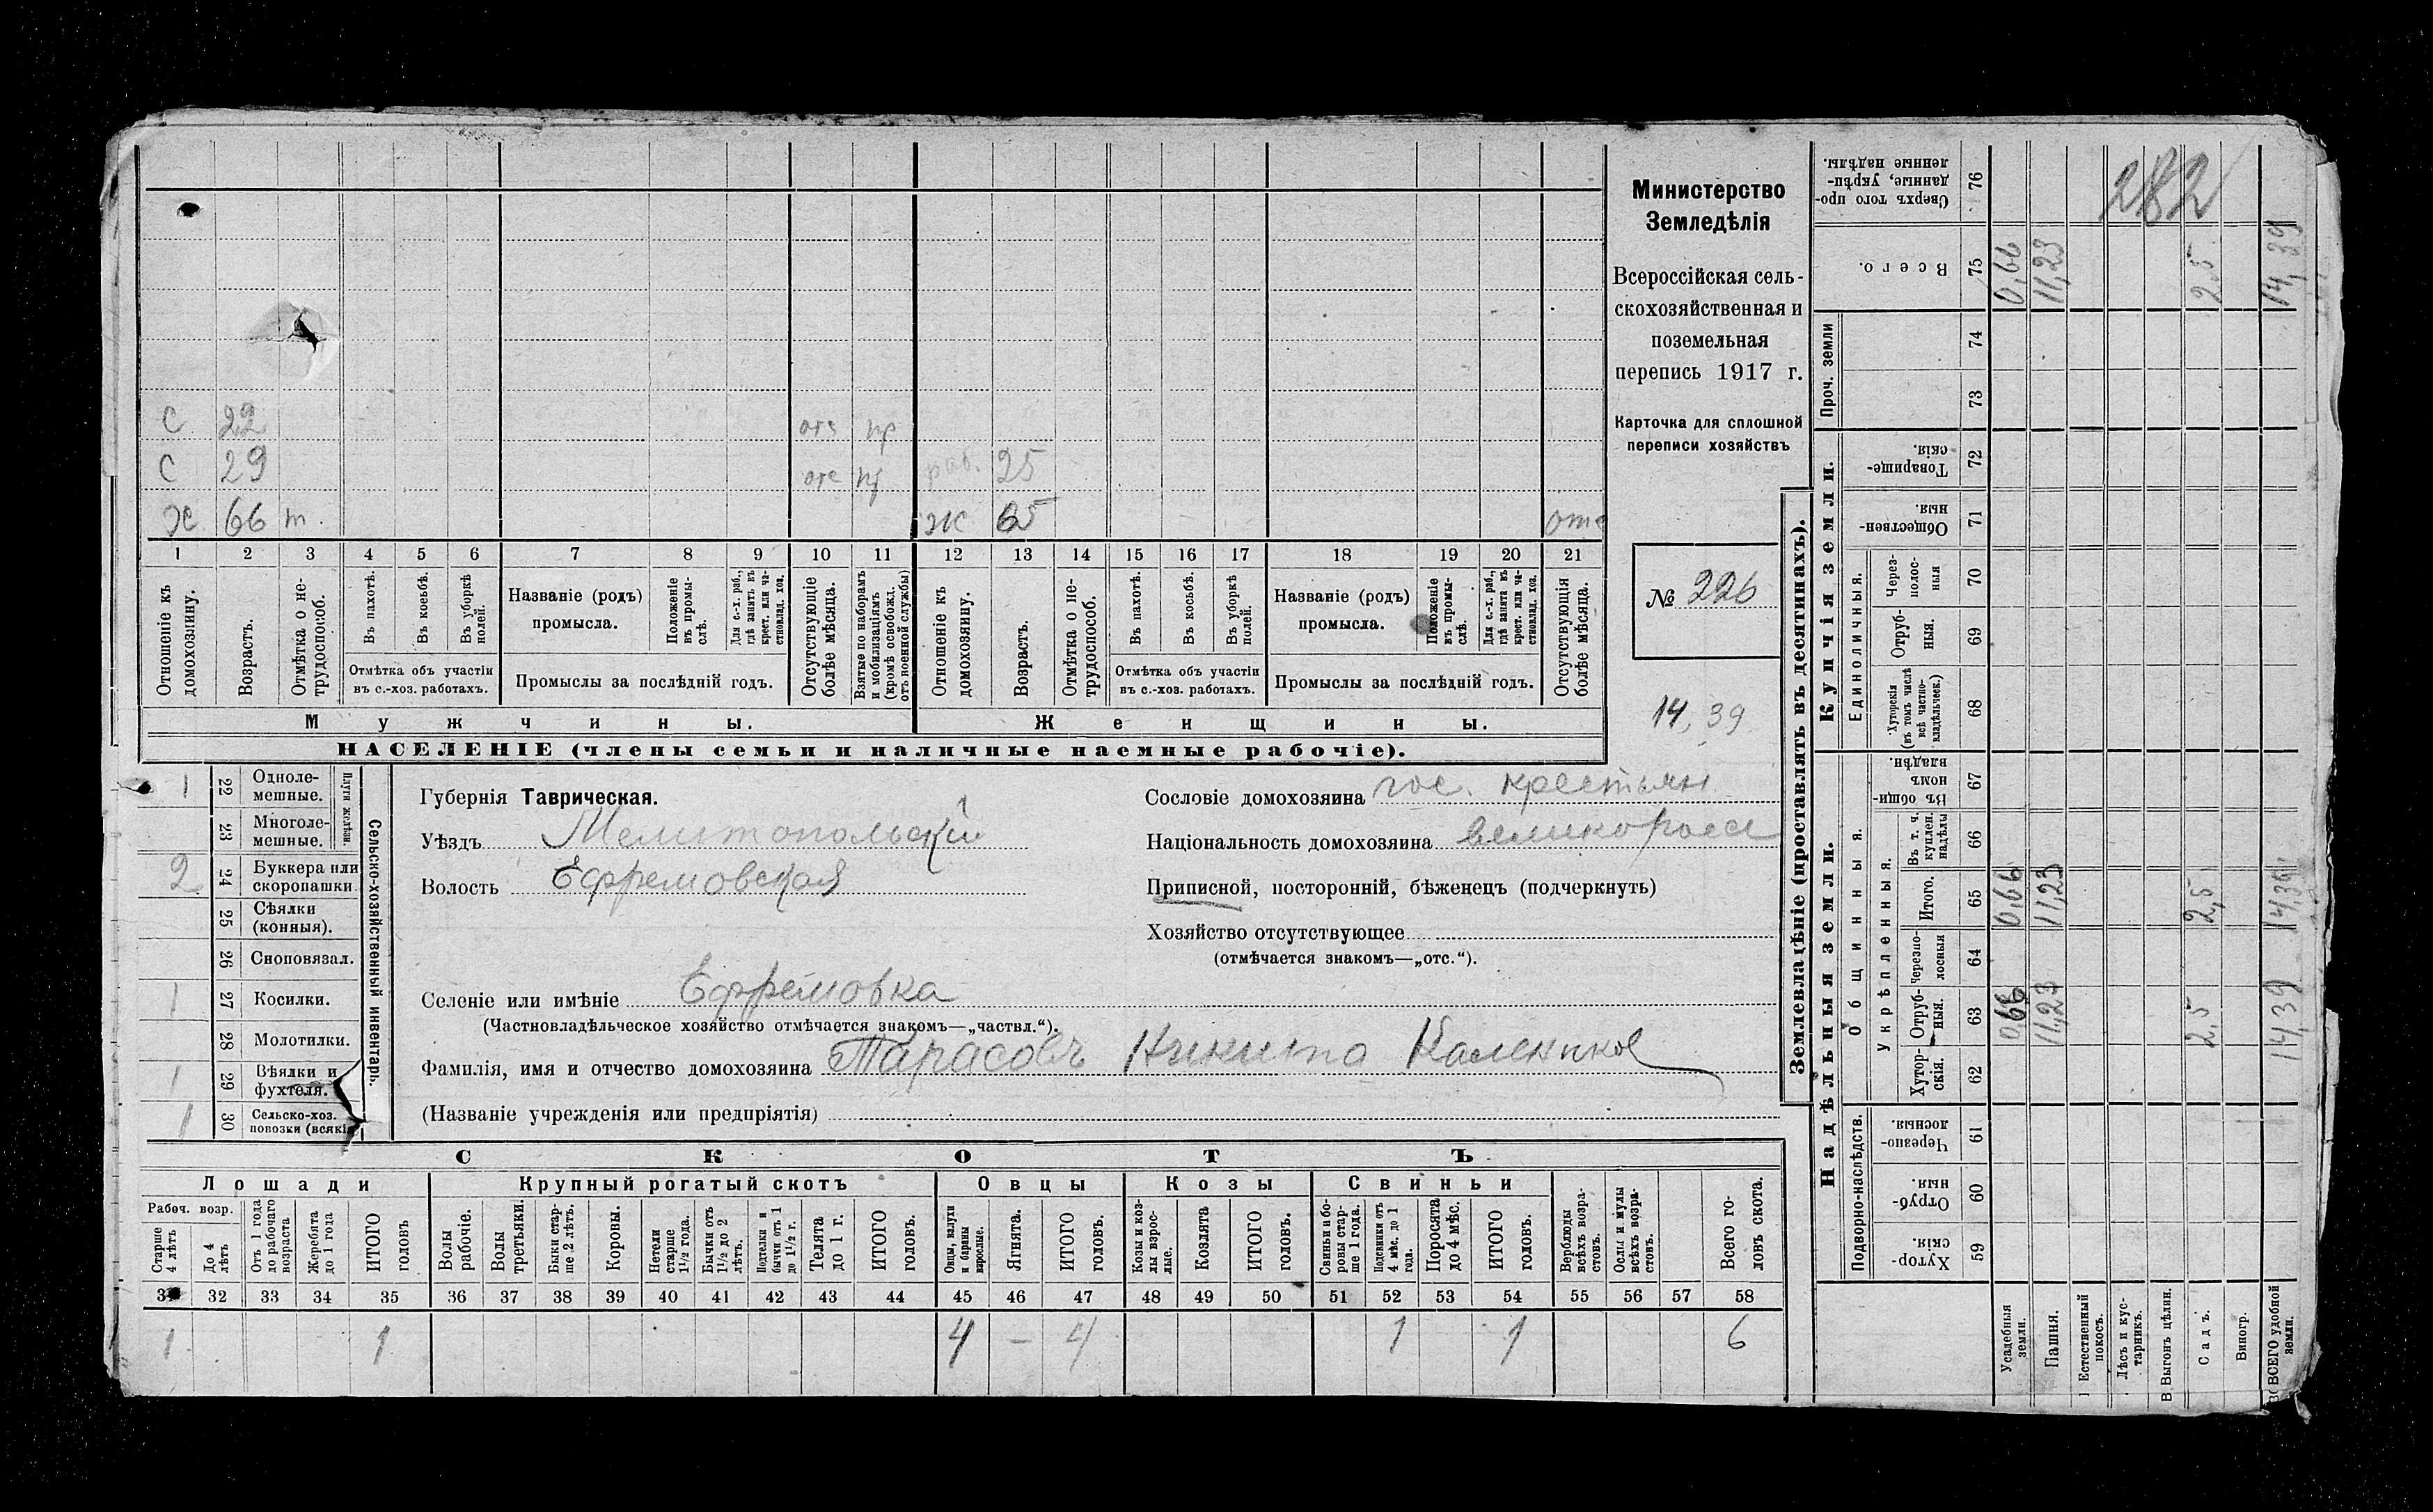 С 22 отс пр
С 29 отс пр раб. 25
Ж 66 т. Ж 65 отс
1 2 3 4 5 6 7 8 9 10 11 12 13 14 15 16 17 18 19 20 21
Отношеніе къ домохозяину.
Возрастъ.
Отмѣтка о не-
трудоспособ.
Въ пахотѣ.
Въ косьбѣ.
Въ уборкѣ полей.
Отмѣтка объ участіи
въ с.-хоз. работахъ.
Названіе (родъ)
промысла.
Положеніе въ промы-
слѣ.
Для с.-х. раб.,
гдѣ занятъ въ
крест. или ча-
стновлад. хоз.
Промыслы за послѣдній годъ.
Отсутствующіе
болѣе мѣсяца.
Взятые по наборамъ
и мобилизаціямъ
(кромѣ освобожд.
отъ военной службы)
Отношеніе къ
домохозяину.
Возрастъ.
Отмѣтка о не-
трудоспособ.
Въ пахотѣ.
Въ косьбѣ.
Въ уборкѣ
полей.
Отмѣтка объ участіи
въ с.-хоз. работахъ.
Названіе (родъ)
промысла.
Положеніе
въ промы-
слѣ.
Для с.-х. раб.,
гдѣ занята въ
крест. или ча-
стновлад. хоз.
Промыслы за послѣдній годъ.
Отсутствующія
болѣе мѣсяца.
Мужчины.
Женщины.
НАСЕЛЕНІЕ (члены семьи и наличные наемные рабочіе).
Министерство
Земледѣлія
Всероссійская сель-
скохозяйственная и
поземельная
перепись 1917 г.
Карточка для сплошной
переписи хозяйствъ
№ 226
14,39
Сельско-хозяйственный инвентарь.
Плуги желѣзн.
1 22 Однолe-
мешные.
23 Многоле-
мешные.
2 24 Буккера или
скоропашки.
25 Сѣялки
(конныя).
26 Сноповязал.
1 27 Косилки.
28 Молотилки.
1 29 Вѣялки и
фухтеля.
1 30 Сельско-хоз.
повозки (всякія
Губернія Таврическая.
Уѣздъ Мелитопольскій
Волость Ефремовская
Сословіе домохозяина гос. крестьян
Національность домохозяина великоросс
Приписной, посторонній, бѣженецъ (подчеркнуть)
Хозяйство отсутствующее
(отмѣчается знакомъ—„отс.“).
Селеніе или имѣніе Ефремовка
(Частновладѣльческое хозяйство отмѣчается знакомъ—„частвл.“).
Фамилія, имя и отчество домохозяина Тарасовъ Никита
(Названіе учрежденія или предпріятія)
СКОТЪ
Лошади
Крупный рогатый скотъ
Овцы
Козы
Свиньи
Рабоч. возр.
Старше
4 лѣтъ
До 4
лѣтъ
Отъ 1 года
до рабочаго
возраста
Жеребята
до 1 года
ИТОГО
головъ
Волы
рабочіе.
Волы
третьяки.
Быки стар-
ше 2 лѣтъ.
Коровы.
Нетели
старше
1½ года.
Бычки отъ
1½ до 2
лѣтъ.
Подтелки и
бычки отъ 1
до 1½ г.
Телята
до 1 г.
ИТОГО
головъ.
Овцы, валухи
и бараны
взрослые.
Ягнята.
ИТОГО
головъ.
Козы и коз-
лы взрос-
лые.
Козлята
ИТОГО
головъ.
Свиньи и бо-
ровы стар-
ше 1 года.
Подсвинки отъ
4 мѣс. до 1
года.
Поросята
до 4 мѣс.
ИТОГО
головъ.
Верблюды
всѣхъ возра-
стовъ.
Ослы и мулы
всѣхъ возра-
стовъ.
Всего го-
ловъ скота.
31 32 33 34 35 36 37 38 39 40 41 42 43 44 45 46 47 48 49 50 51 52 53 54 55 56 57 58
1 1 4 — 4 1 1 6
Землевладѣніе (проставлять въ десятинахъ).
Надѣльныя земли.
Купчія земли.
Проч. земли
Подворно-наслѣдств.
Общинныя.
Укрѣпленныя.
Единоличныя.
Хутор-
скія. 59
Отруб-
ныя. 60
Черезпо-
лосныя. 61
Хутор-
скія. 62
Отруб-
ныя. 63
Черезпо-
лосныя 64
Итого. 65
Въ т. ч.
куплен.
надѣлы 66
Въ общи-
номъ
владѣн. 67
Хуторскія
(въ томъ числѣ
всѣ частно-
владѣльческ.) 68
Отруб-
ныя. 69
Через-
полос-
ныя 70
Обществен-
ныя. 71
Товарище-
скія. 72
73
74
Всего. 75
Сверхъ того про-
данные, укрѣп-
ленные надѣлы. 76
Усадебныя
земли. 0,66 0,66 0,66
Пашня. 11,23 11,23 11,23
Естественный
покосъ.
Лѣсъ и кус-
тарникъ.
Выгонъ цѣлин.
Садъ. 2,5 2,5 2,5
Виногр.
ВСЕГО удобной
земли. 14,39 14,39 14,39
282